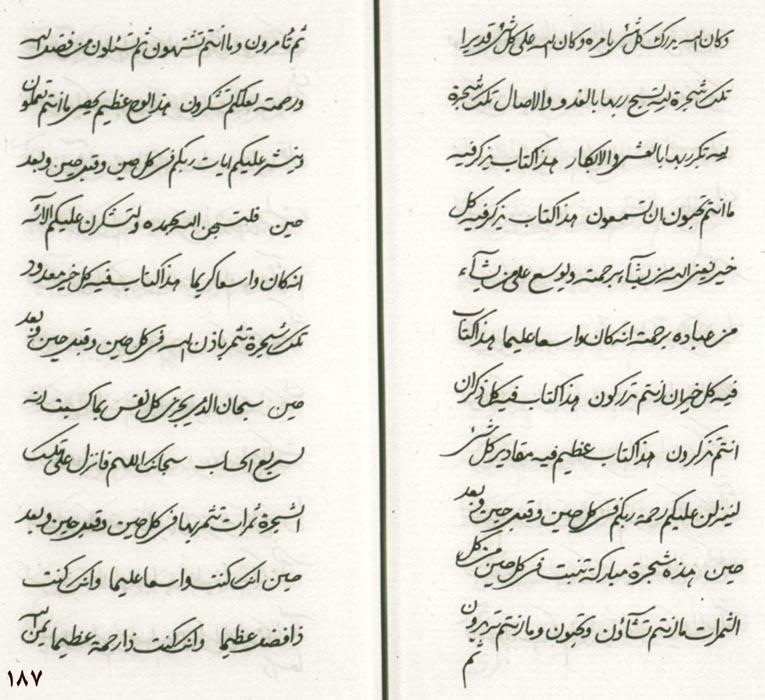 وكان الله يدرك كل شئ بامره وكان الله على كل شئ قديرا
تلك شجرة لله تسبح ربها بالغدو والاصال تلك شجرة
لله تكبر ربها بالعشى والابكار هذا كتاب يذكر فيه
ما انتم تحبون ان تسمعون هذا كتاب يذكر فيه كل
خير يغنى الله من يشآء برحمته ويوسع على من يشآء
من عباده برحمته انه كان واسعا عليما هذا كتاب
فيه كل خير ان انتم تدركون هذا كتاب فيه كل ذكر ان
انتم تذكرون هذا كتاب عظيم فيه مقادير كل شئ
لينزلن عليكم رحمة ربكم فى كل حين وقبل حين وبعد
حين هذه شجرة مباركة تنبت فى كل حين من كل
الثمرات ما انتم تشآؤن وتحبون وما انتم تريدون
ثم
ثم تامرون وما انتم تشتهون ثم تسئلون من فضل الله
ورحمته لعلكم تشكرون هذا لوح عظيم يحصى ما انتم تعملون
وينشر عليكم ايات ربكم فى كل حين وقبل حين وبعد
حين فلتسبحن الله بحمده ولتشكرن عليكم الائه
انه كان واسعا كريما هذا كتاب فيه كل خير معدود
تلك شجرة تثمر باذن الله فى كل حين وقبل حين وبعد
حين سبحان الذى يجزى كل نفس بما كسبت انه
لسريع الحساب سبحانك اللهم فانزل على تلك
الشجرة ثمرات تثمر بها فى كل حين وقبل حين وبعد
حين انك كنت واسعا عليما وانك كنت
ذا فضل عظيما وانك كنت ذا رحمة عظيما لمن الله
١٨٧